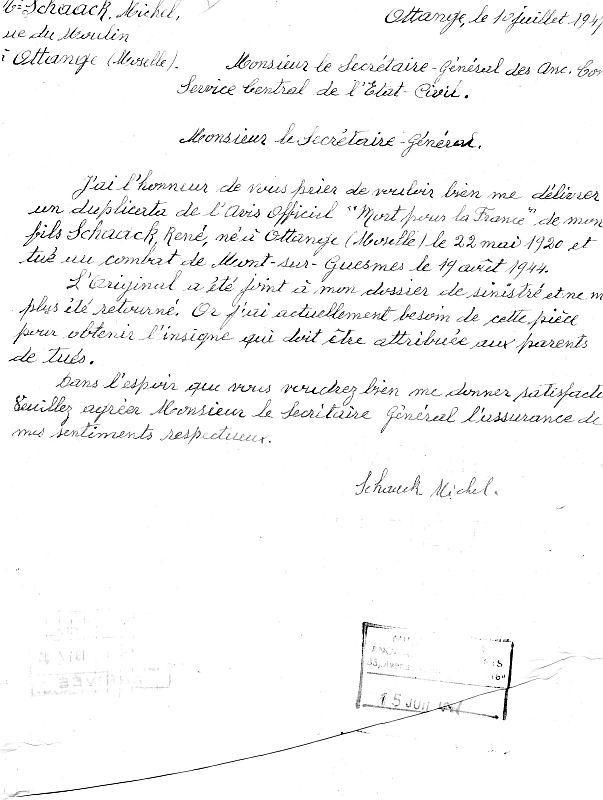 Mr Schaack, Michel,
rue du Moulin
à Ottange (Moselle).
Ottange, le 10 juillet 194
Monsieur le Secrétaire-Général des Anc. Com
Service Central de l'Etat-Civil.
Monsieur le Secrétaire-Général.
J'ai l'honneur de vous prier de vouloir bien me délivrer
un duplicata de l'Avis Officiel "Mort pour la France" de mon
fils Schaack, René, né à Ottange (Moselle) le 22 mai 1920 et
tué au combat de Mont-sur-Guesmes le 19 août 1944.
L'Original a été joint à mon dossier de sinistré et ne m
plus été retourné. Or j'ai actuellement besoin de cette pièce
pour obtenir l'insigne qui doit être attribuée aux parents
de tués.
Dans l'espoir que vous voudrez bien me donner satisfacti
Veuillez agréer Monsieur le Secrétaire Général l'assurance de
mes sentiments respectueux.
Schaack Michel.
15 JUIL